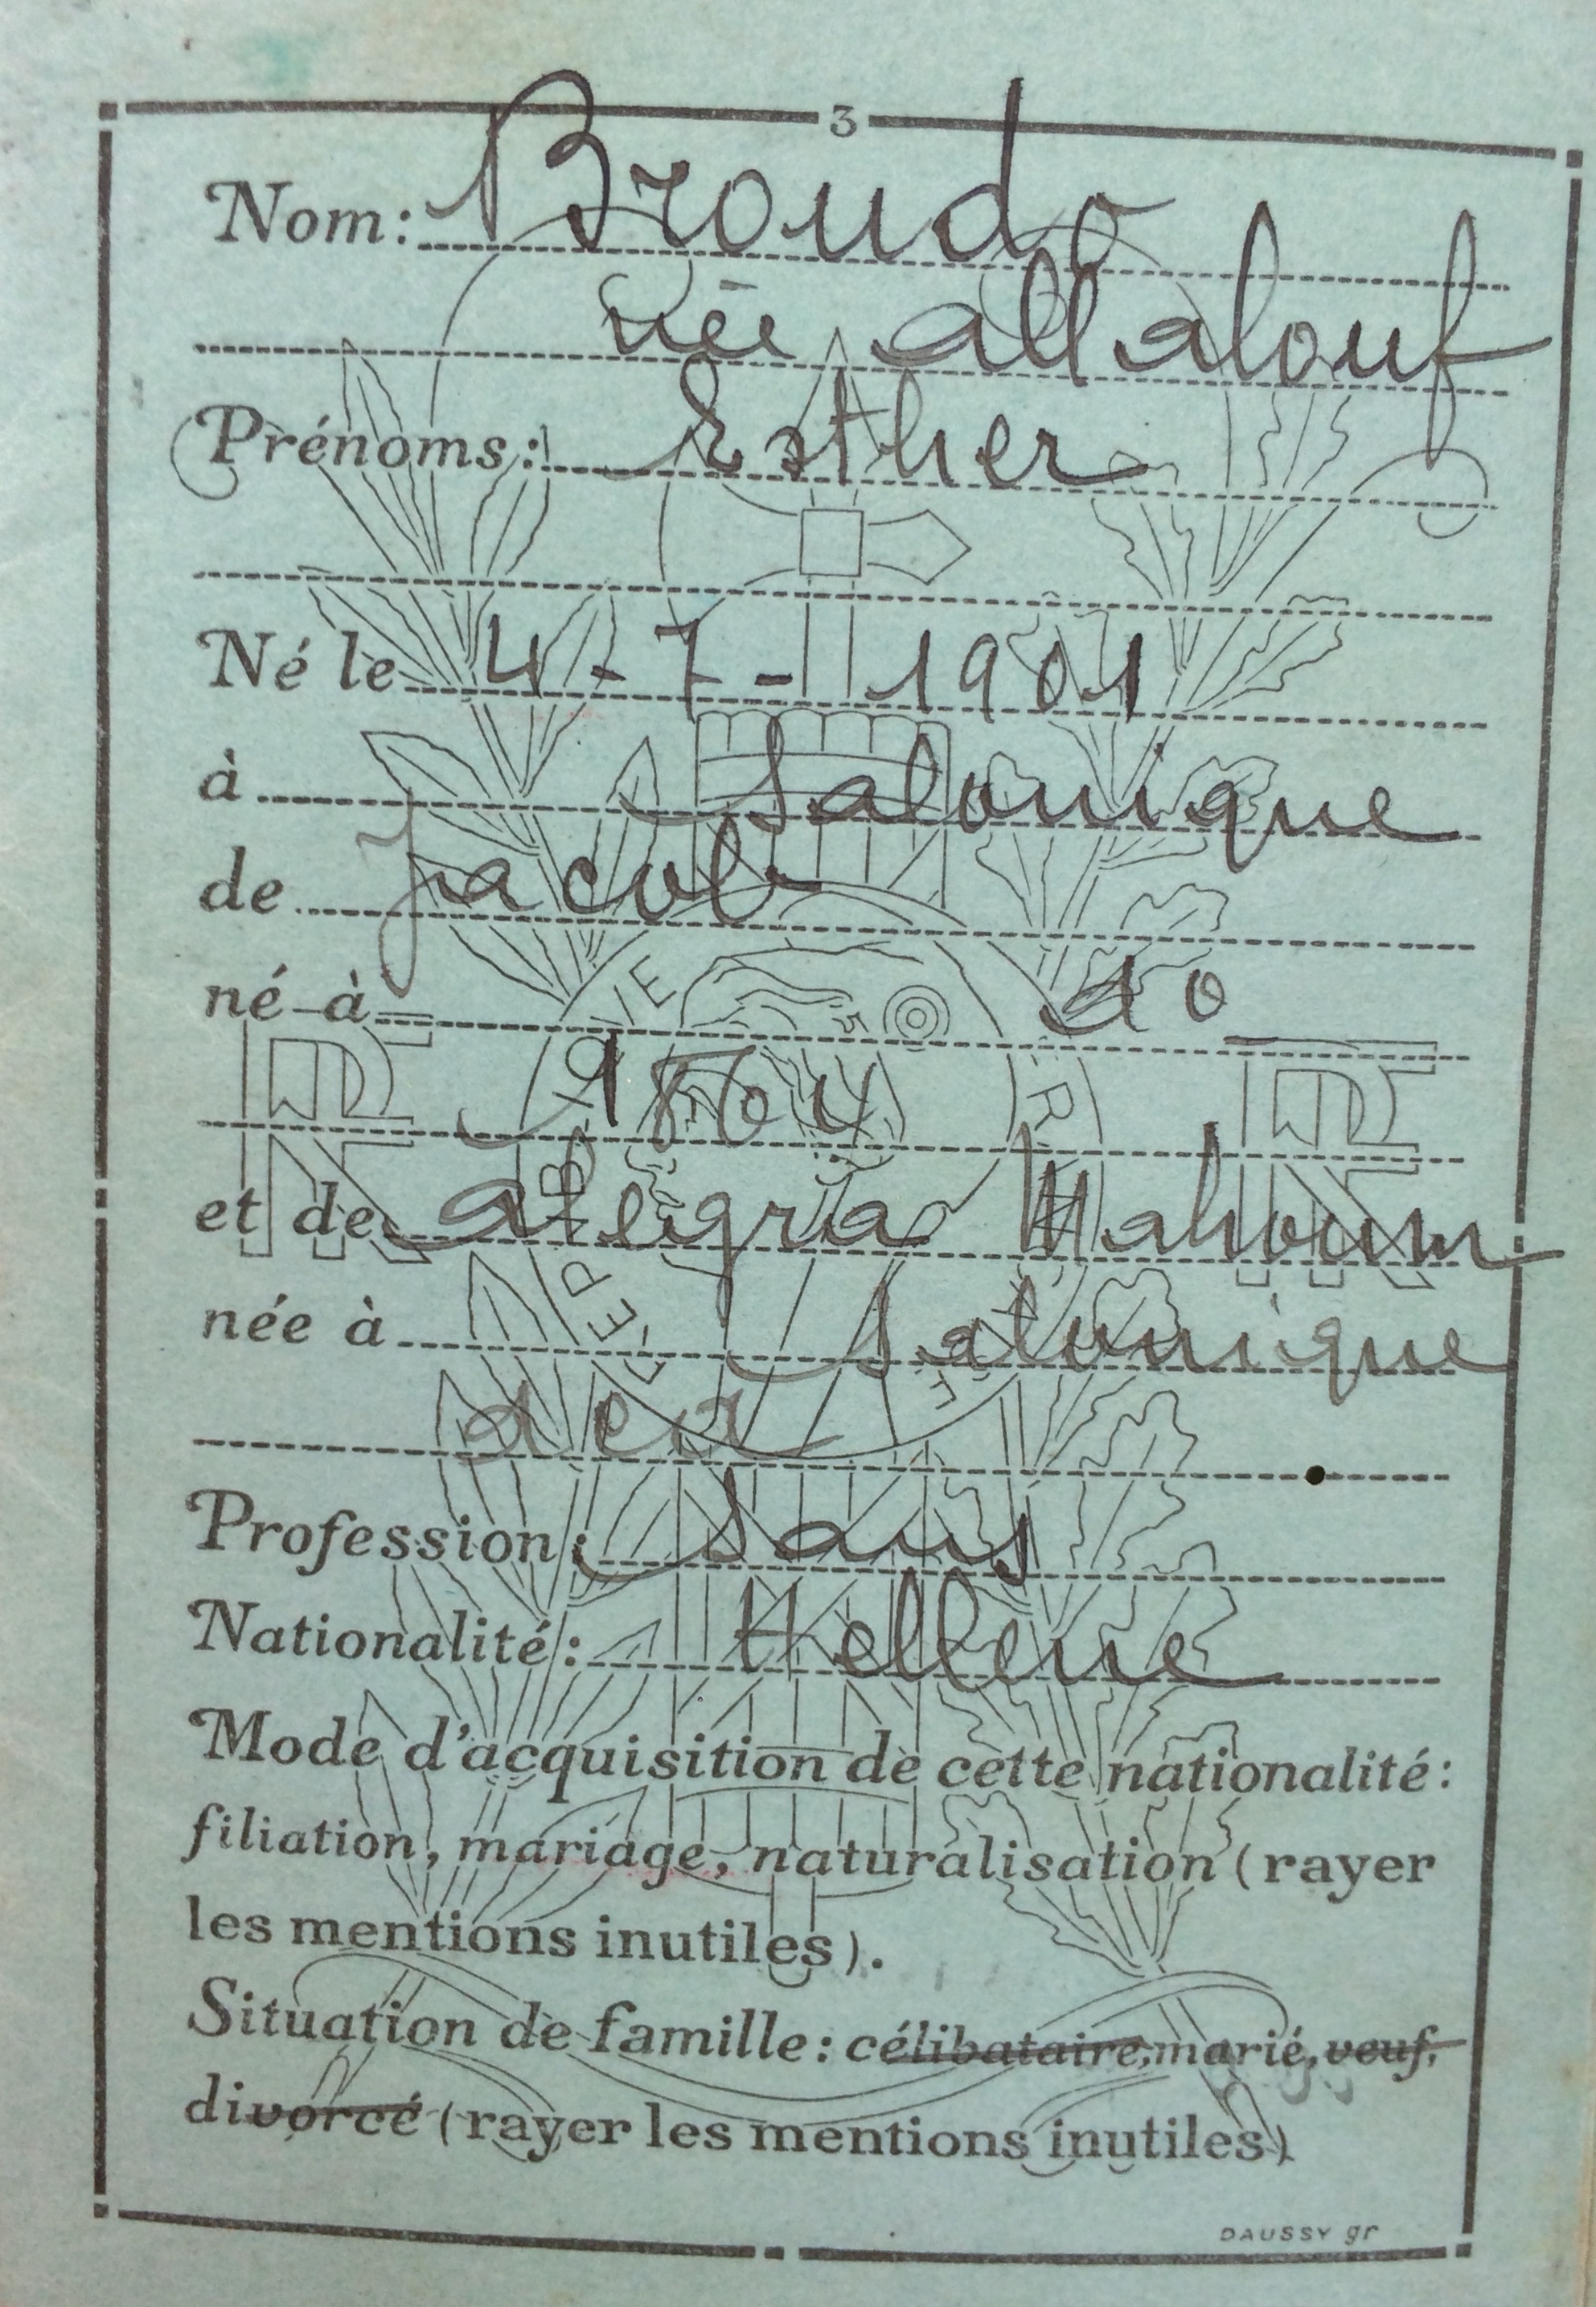 3
Nom: Broudo
née allalouf
Prénoms: Esther
Né le 4-7-1901
à Salonique
de Jacob
né à do
et de alegria Nahoum
née à Salonique
dcd
Profession: Sans
Nationalité: Hellene
Mode d'acquisition de cette nationalité:
filiation, mariage, naturalisation (rayer
les mentions inutiles).
Situation de famille: célibataire, marié, veuf,
divorcé (rayer les mentions inutiles)
DAUSSY gr
RÉPUBLIQUE
RF RF